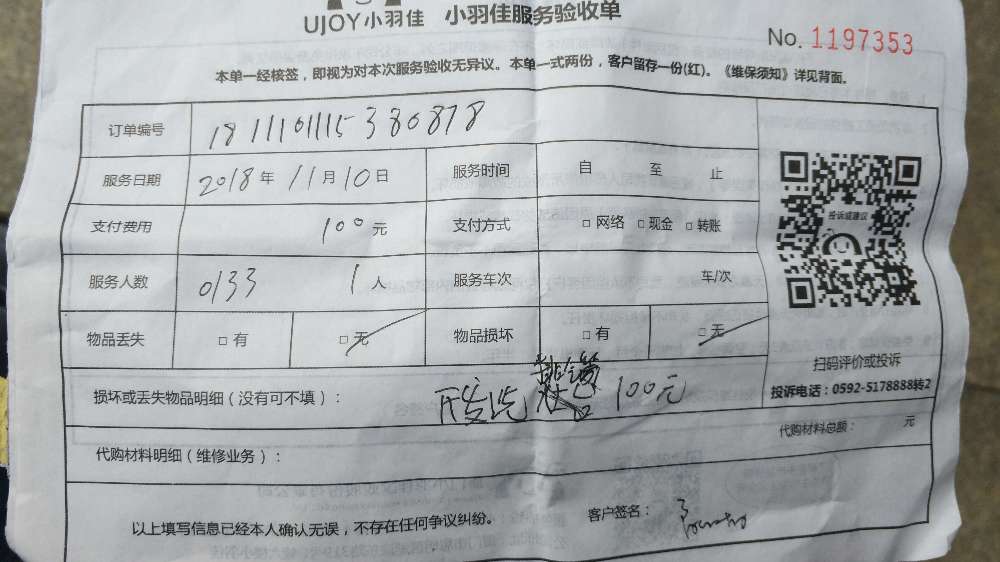 UJOY小羽佳 小羽佳服务验收单
No. 1197353
本单一经核签，即视为对本次服务验收无异议。本单一式两份，客户留存一份(红)。《维保须知》详见背面。
订单编号 1811101115380878
服务日期 2018年11月10日 服务时间 自 至 止
支付费用 100元 支付方式 □网络 □现金 □转账
服务人数 0133 1人 服务车次 车/次
物品丢失 □有 □无 物品损坏 □有 □无
投诉或建议
扫码评价或投诉
投诉电话：0592-5178888转2
损坏或丢失物品明细（没有可不填）： 100元
代购材料总额： 元
代购材料明细（维修业务）：
以上填写信息已经本人确认无误，不存在任何争议纠纷。 客户签名：